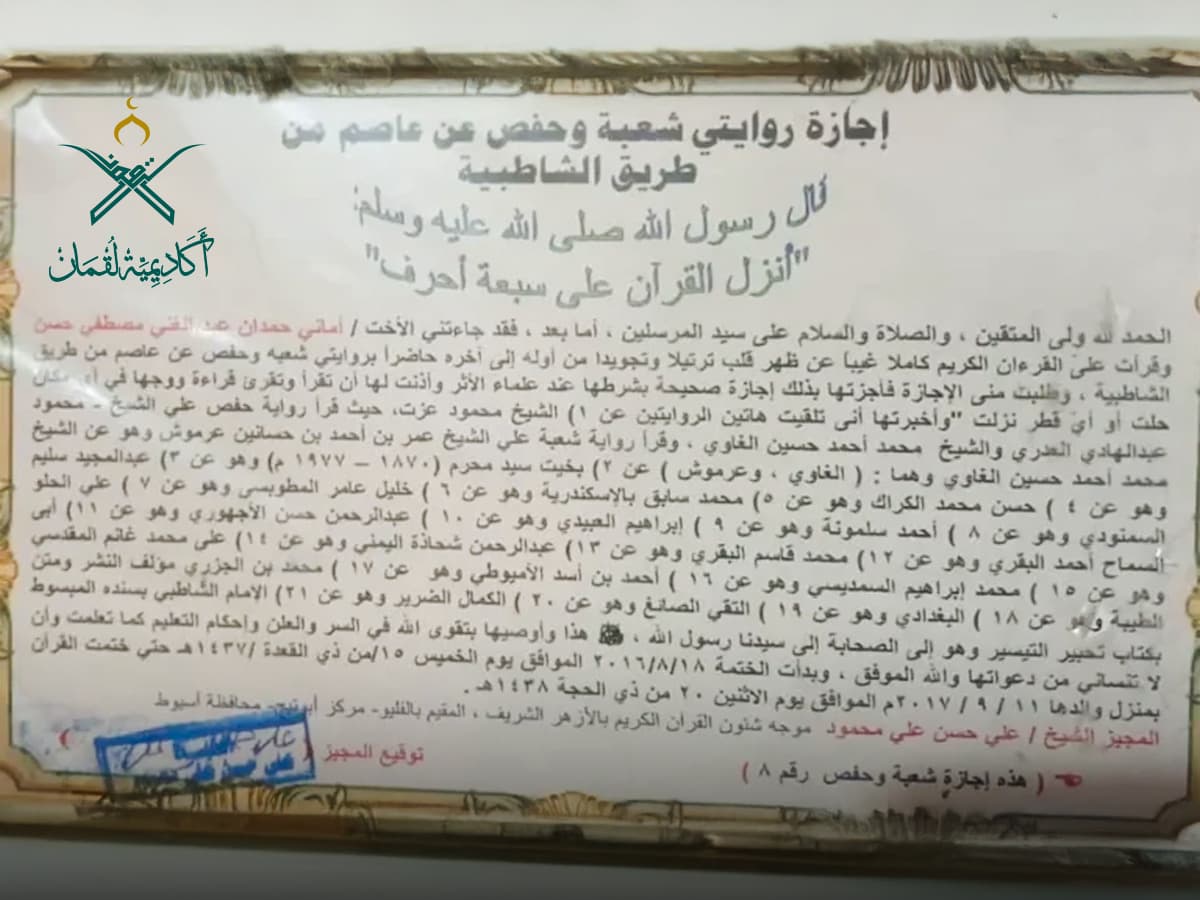 أكاديمية لقمان
إجازة روايتي شعبة وحفص عن عاصم من
طريق الشاطبية
قال رسول الله صلى الله عليه وسلم:
"أنزل القرآن على سبعة أحرف"
الحمد لله ولى المتقين ، والصلاة والسلام على سيد المرسلين ، أما بعد ، فقد جاءتني الأخت / أماني حمدان عبد الغني مصطفي حسن
وقرأت علىّ القرءان الكريم كاملا غيباً عن ظهر قلب ترتيلا وتجويدا من أوله إلى آخره حاضراً بروايتي شعبه وحفص عن عاصم من طريق
الشاطبية ، وطلبت منى الإجازة فأجزتها بذلك إجازة صحيحة بشرطها عند علماء الأثر وأذنت لها أن تقرأ وتقرئ قراءة ووجها في أي مكان
حلت أو أيّ قطر نزلت "وأخبرتها أنى تلقيت هاتين الروايتين عن ١) الشيخ محمود عزت، حيث قرأ رواية حفص علي الشيخ - محمود
عبدالهادي العدري والشيخ محمد أحمد حسين الغاوي ، وقرأ رواية شعبة علي الشيخ عمر بن أحمد بن حسانين عرموش وهو عن الشيخ
محمد أحمد حسين الغاوي وهما : ( الغاوي ، وعرموش ) عن ٢) بخيت سيد محرم (١٨٧٠ – ١٩٧٧ م) وهو عن ٣) عبدالمجيد سليم
وهو عن ٤ ) حسن محمد الكراك وهو عن ٥) محمد سابق بالإسكندرية وهو عن ٦ ) خليل عامر المطوبسى وهو عن ٧ ) علي الحلو
السمنودي وهو عن ٨ ) أحمد سلمونة وهو عن ٩ ) إبراهيم العبيدي وهو عن ١٠ ) عبدالرحمن حسن الأجهوري وهو عن ١١) أبى
السماح أحمد البقري وهو عن ١٢) محمد قاسم البقري وهو عن ١٣) عبدالرحمن شحاذة اليمني وهو عن ١٤) على محمد غانم المقدسي
وهو عن ١٥ ) محمد إبراهيم السمديسي وهو عن ١٦ ) أحمد بن أسد الأميوطي وهو عن ١٧ ) محمد بن الجزري مؤلف النشر ومتن
الطيبة وهو عن ١٨ ) البغدادي وهو عن ١٩ ) التقي الصانغ وهو عن ٢٠ ) الكمال الضرير وهو عن ٢١) الإمام الشاطبي بسنده المبسوط
بكتاب تحبير التيسير وهو إلى الصحابة إلى سيدنا رسول الله ، ﷺ هذا وأوصيها بتقوى الله في السر والعلن وإحكام التعليم كما تعلمت وأن
لا تنساني من دعواتها والله الموفق ، وبدأت الختمة ٢٠١٦/٨/١٨ الموافق يوم الخميس ١٥/من ذي القعدة /١٤٣٧هـ حتي ختمت القرآن
بمنزل والدها ١١ / ٩ / ٢٠١٧م الموافق يوم الاثنين ٢٠ من ذي الحجة ١٤٣٨هـ .
المجيز الشيخ / علي حسن علي محمود موجه شئون القرآن الكريم بالأزهر الشريف ، المقيم بالفليو- مركز أبوتيج- محافظة أسيوط
توقيع المجيز (
( هذه إجازة شعبة وحفص رقم ٨ )